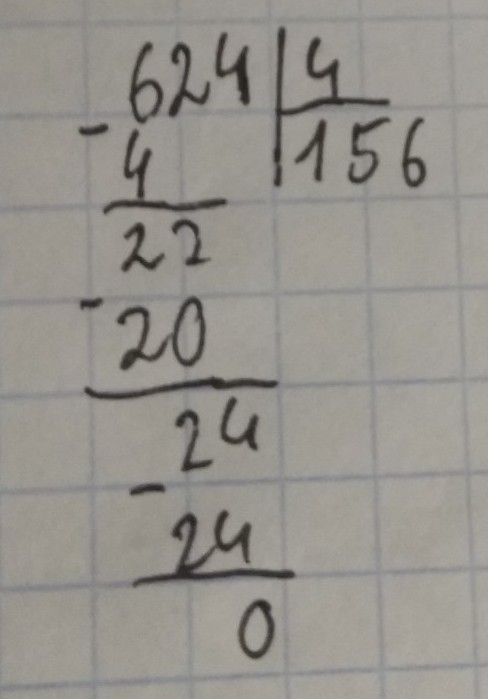 624 | 4
- 4 | 156
22
- 20
24
- 24
0